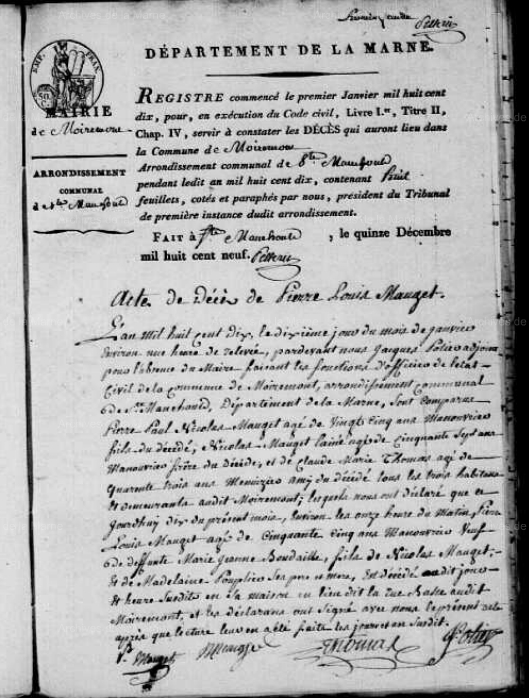 Premier feuillet
Pesserin
DÉPARTEMENT DE LA MARNE.
EMP. FRAN.
50 C.
MAIRIE
de Moiremont
ARRONDISSEMENT
COMMUNAL
d Ste Manehould
REGISTRE commencé le premier Janvier mil huit cent
dix, pour, en exécution du Code civil, Livre I.er, Titre II,
Chap. IV, servir à constater les DÉCÈS qui auront lieu dans
la Commune de Moiremont
Arrondissement communal de Ste Manehould
pendant ledit an mil huit cent dix, contenant huit
feuillets, cotés et paraphés par nous, président du Tribunal
de première instance dudit arrondissement.
FAIT à Ste Manehould, le quinze Décembre
mil huit cent neuf.
Acte de Décès de Pierre Louis Mauget.
L'an mil huit cent dix, le dixième jour du mois de janvier
environ une heure de relevée, pardevant nous Jacques adjoint
pour l'absence du Maire faisant les fonctions d'officier de l'etat
Civil de la commune de Moiremont, arrondissement communal
de Ste Manehould, Département de la Marne, sont comparus
Pierre Paul Nicolas Mauget agé de Vingt Cinq ans Manouvrier
fils du décédé, Nicolas Mauget l'ainé agé de Cinquante Sept ans
Manouvrier frère du décédé, et de Claude Marie Thomas agé de
quarente trois ans Menuizier amy du décédé tous les trois habitans
et demeurants audit Moiremont; lesquels nous ont déclaré que ce
jourdhuy dix du présent mois, Environ les onze heures du Matin, Pierre
Louis Mauget agé de Cinquante Cinq ans Manouvrier Veuf
de deffunte Marie Jeanne Boudaille, fils de Nicolas Mauget,
et de Madelaine Pouplier ses pere et mere, Est décédé audit jour
et heure Susdits en sa maison en lieu dit la rue Basse audit
Moiremont, et les déclarans ont Signé avec nous le présent acte
après que lecture leur en a été faite les jours et an Susdit.
Mauget
Thomas